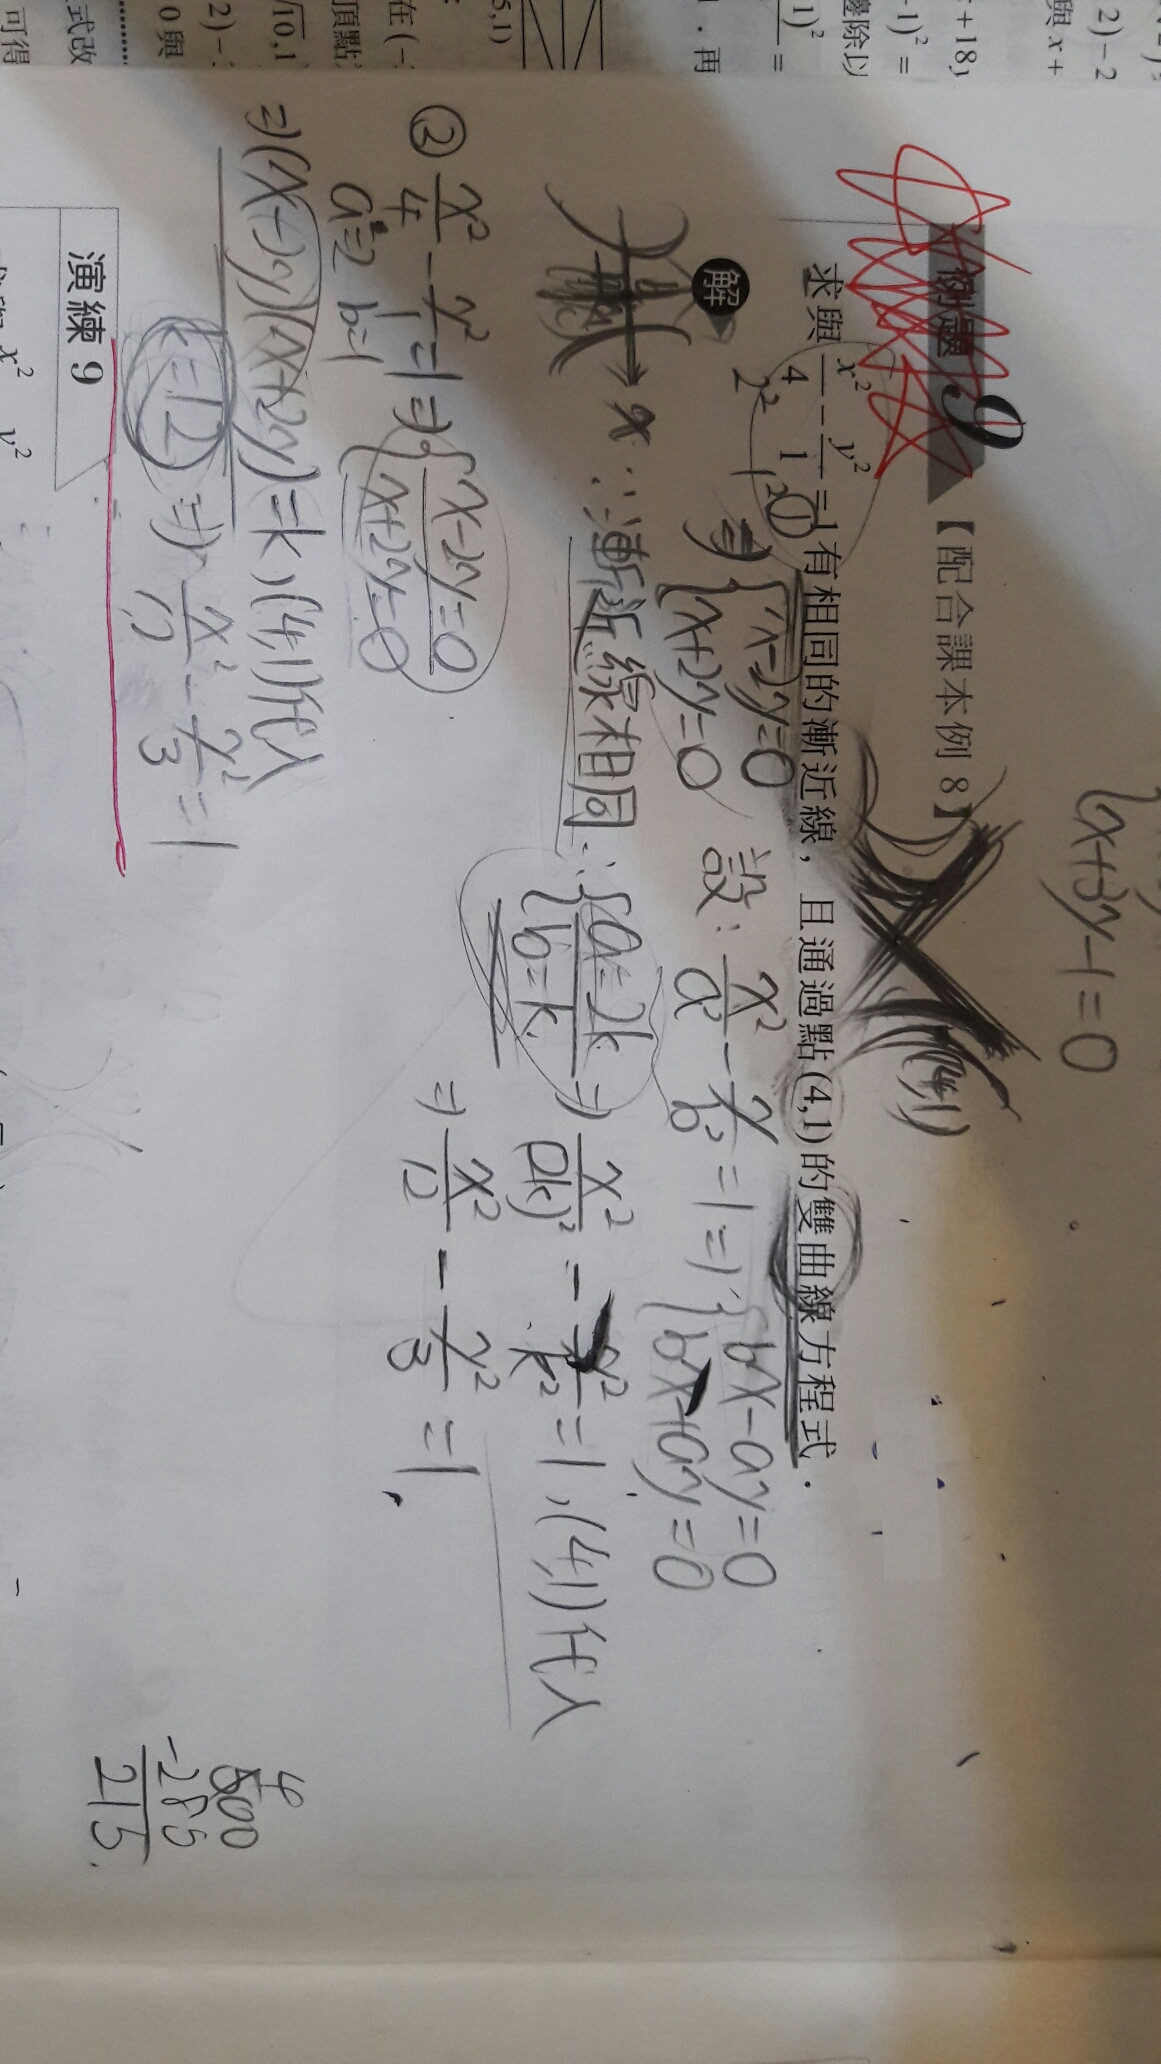 x+3y-1=0
例題 9 【配合課本例 8】
(4,1)
求與 x²/4 - y²/1 = 1 有相同的漸近線，且通過點(4,1)的雙曲線方程式．
2² 1²
解
① ⇒ { x-2y=0
x+2y=0
設: x²/a² - y²/b² = 1 ⇒ { bx-ay=0
bx+ay=0
x ∵漸近線相同 ∴ { a=2k
b=k
⇒ x²/(2k)² - y²/k² = 1, (4,1)代入
⇒ x²/12 - y²/3 = 1
② x²/4 - y²/1 = 1 ⇒ { x-2y=0
x+2y=0
a=2 b=1
⇒ (x-2y)(x+2y)=k, (4,1)代入
k=12 ⇒ x²/12 - y²/3 = 1
演練 9
x² y²
4
500
-285
215